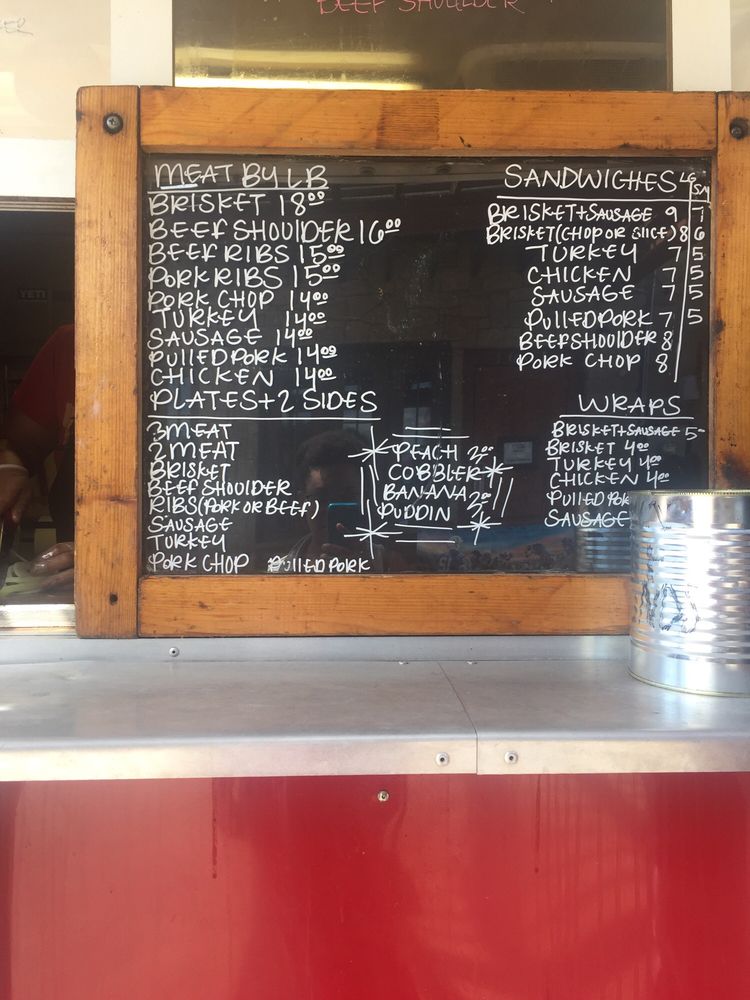 BEEF SHOULDER
YETI
MEAT BY LB
BRISKET 18⁰⁰
BEEF SHOULDER 16⁰⁰
BEEF RIBS 15⁰⁰
PORK RIBS 15⁰⁰
PORK CHOP 14⁰⁰
TURKEY 14⁰⁰
SAUSAGE 14⁰⁰
PULLED PORK 14⁰⁰
CHICKEN 14⁰⁰
PLATES + 2 SIDES
3 MEAT
2 MEAT
BRISKET
BEEF SHOULDER
RIBS (PORK OR BEEF)
SAUSAGE
TURKEY
PORK CHOP PULLED PORK
PEACH 2⁰⁰
COBBLER
BANANA
PUDDIN 2⁰⁰
SANDWICHES LG SM
BRISKET + SAUSAGE 9 7
BRISKET (CHOP OR SLICE) 8 6
TURKEY 7 5
CHICKEN 7 5
SAUSAGE 7 5
PULLED PORK 7 5
BEEF SHOULDER 8
PORK CHOP 8
WRAPS
BRISKET + SAUSAGE 5
BRISKET 4⁰⁰
TURKEY 4⁰⁰
CHICKEN 4⁰⁰
PULLED POR
SAUSAGE